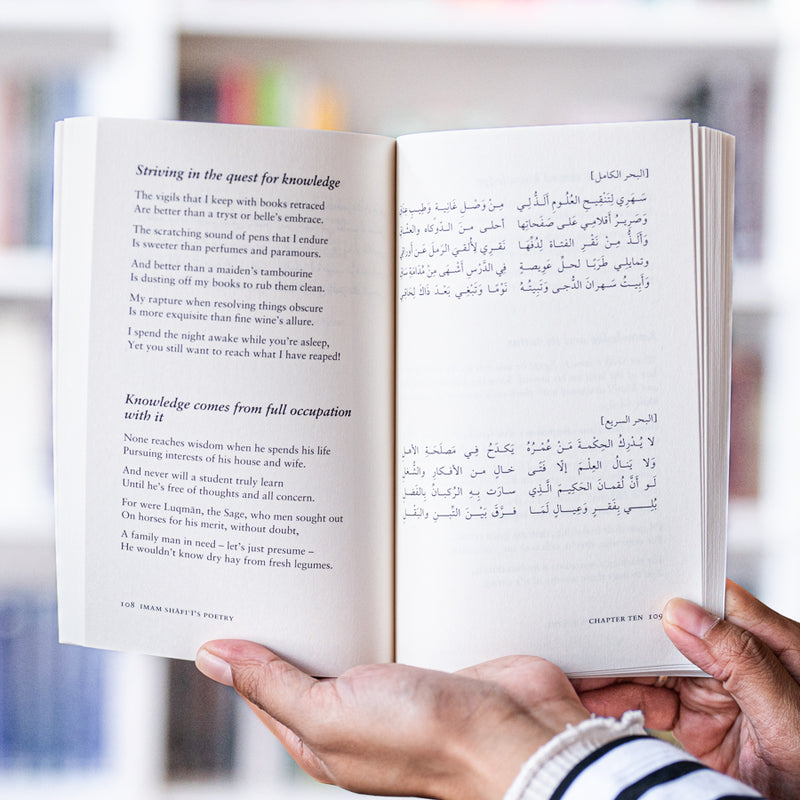 Striving in the quest for knowledge
The vigils that I keep with books retraced
Are better than a tryst or belle's embrace.
The scratching sound of pens that I endure
Is sweeter than perfumes and paramours.
And better than a maiden's tambourine
Is dusting off my books to rub them clean.
My rapture when resolving things obscure
Is more exquisite than fine wine's allure.
I spend the night awake while you're asleep,
Yet you still want to reach what I have reaped!
Knowledge comes from full occupation
with it
None reaches wisdom when he spends his life
Pursuing interests of his house and wife.
And never will a student truly learn
Until he's free of thoughts and all concern.
For were Luqmān, the Sage, who men sought out
On horses for his merit, without doubt,
A family man in need – let's just presume –
He wouldn't know dry hay from fresh legumes.
108 IMAM SHĀFIʿĪ'S POETRY
[البحر الكامل]
سَهَرِي لِتَنْقِيحِ العُلُومِ أَلَذُّ لِي مِنْ وَصْلِ غَانِيَة وَطِيبِ
وَصَرِيرُ أَقْلَامِي عَلَى صَفَحَاتِهَا أحلى منَ الدَّوْكَاء والعشاق
وَأَلَذُّ مِنْ نَقْرِ الفتاة لِدُفِّهَا نَقري لِأُلقيَ الرَملَ عَن أوراقي
وتمايلي طَرَبًا لحلِّ عَويصةٍ في الدَّرْس أَشْهَى مِنْ مُدَامَة
وَأَبِيتُ سَهرانَ الدُّجَى وَتَبِيتُهُ نَوْمًا وَتَبْغِي بَعْدَ ذَاكَ لحَاقِي
[البحر السريع]
لا يُدْرِكُ الحِكْمَةَ مَنْ عُمْرُهُ يَكدَحُ فِي مَصْلَحَةِ الأهل
وَلا يَنالُ العِلْمَ إلّا فَتًى خالٍ من الأفكارِ والشُّغل
لَو أَنَّ لُقمانَ الحَكِيمَ الَّذِي سارَت بِهِ الرُكبانُ بِالفَضل
بُلِي بِفَقرٍ وَعِيالٍ لَمَا فرَّقَ بَيْنَ التِّبْنِ والبَقْل
CHAPTER TEN 109